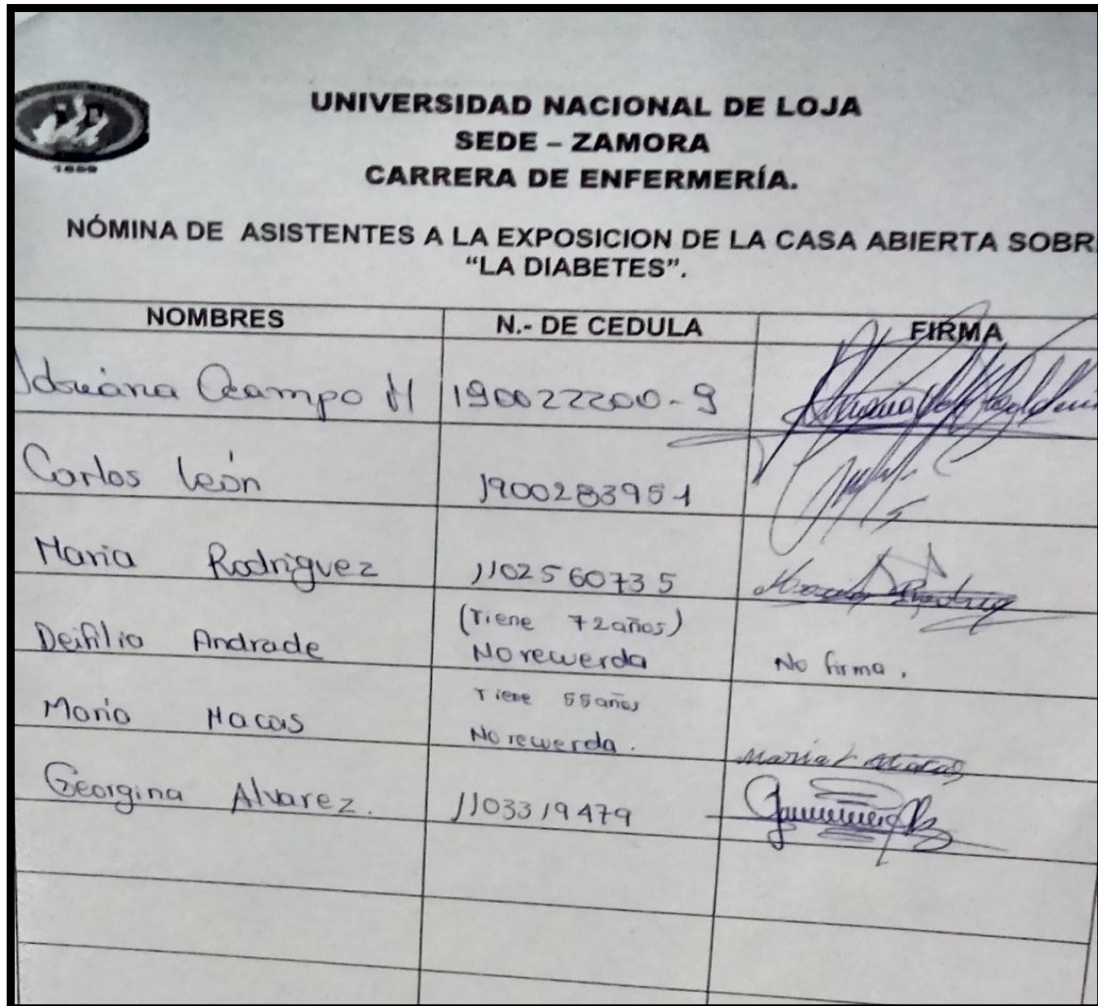 1859
UNIVERSIDAD NACIONAL DE LOJA
SEDE – ZAMORA
CARRERA DE ENFERMERÍA.
NÓMINA DE ASISTENTES A LA EXPOSICION DE LA CASA ABIERTA SOBR
“LA DIABETES”.
NOMBRES N.- DE CEDULA FIRMA
Adriana Ocampo M 190022200-9
Carlos León 1900283951
Maria Rodriguez 1102560735
(Tiene 72años)
Deifilio Andrade No recuerda No firma.
Tiene 55años
Maria Macas No recuerda. Maria Macas
Georgina Alvarez. 1103319479